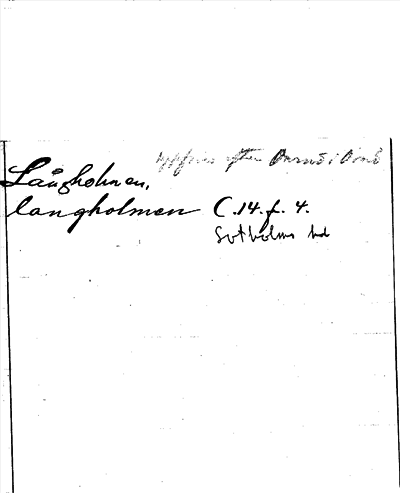 efter Ornö i Ornö
Långholmen,
langholmen C.14.f. 4.
Sotholms hd